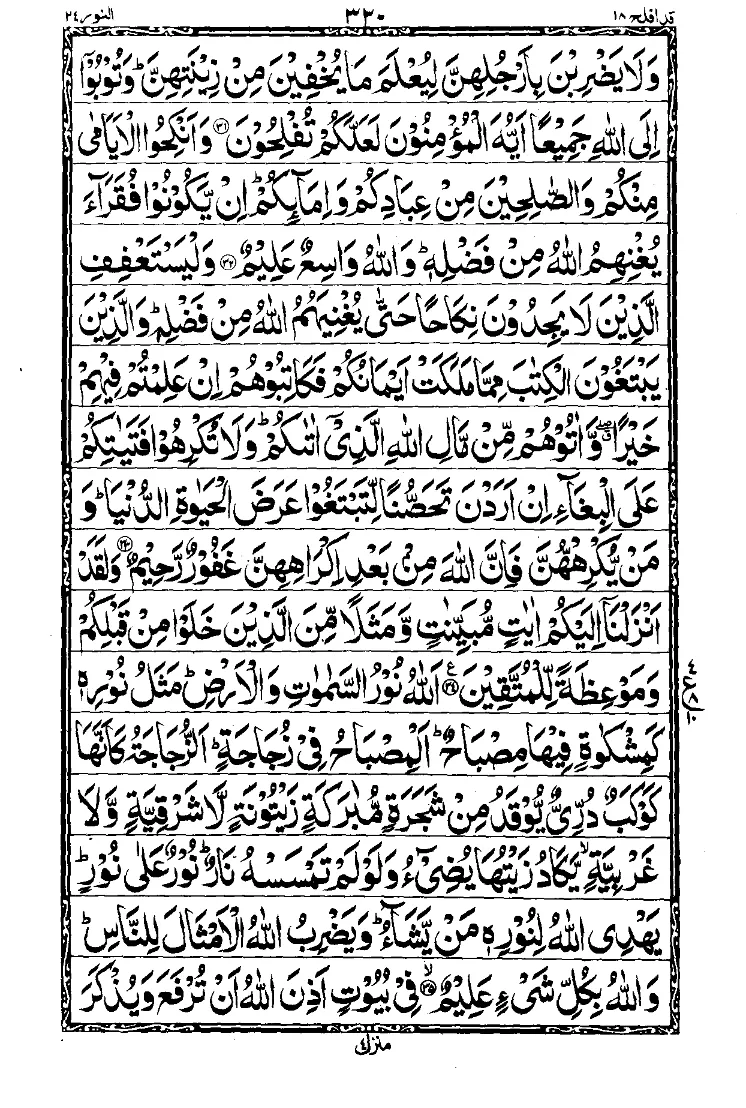 قد افلح ١٨ ٣٢٠ النور ٢٤
وَلَا يَضْرِبْنَ بِاَرْجُلِهِنَّ لِيُعْلَمَ مَا يُخْفِيْنَ مِنْ زِيْنَتِهِنَّ ؕ وَتُوْبُوْۤا
اِلَى اللّٰهِ جَمِيْعًا اَيُّهَ الْمُؤْمِنُوْنَ لَعَلَّكُمْ تُفْلِحُوْنَ ﴿٣١﴾ وَاَنْكِحُوا الْاَيَامٰى
مِنْكُمْ وَالصّٰلِحِيْنَ مِنْ عِبَادِكُمْ وَاِمَآئِكُمْ ؕ اِنْ يَّكُوْنُوْا فُقَرَآءَ
يُغْنِهِمُ اللّٰهُ مِنْ فَضْلِهٖ ؕ وَاللّٰهُ وَاسِعٌ عَلِيْمٌ ﴿٣٢﴾ وَلْيَسْتَعْفِفِ
الَّذِيْنَ لَا يَجِدُوْنَ نِكَاحًا حَتّٰى يُغْنِيَهُمُ اللّٰهُ مِنْ فَضْلِهٖ ؕ وَالَّذِيْنَ
يَبْتَغُوْنَ الْكِتٰبَ مِمَّا مَلَكَتْ اَيْمَانُكُمْ فَكَاتِبُوْهُمْ اِنْ عَلِمْتُمْ فِيْهِمْ
خَيْرًا ۖ وَّاٰتُوْهُمْ مِّنْ مَّالِ اللّٰهِ الَّذِيْۤ اٰتٰىكُمْ ؕ وَلَا تُكْرِهُوْا فَتَيٰتِكُمْ
عَلَى الْبِغَآءِ اِنْ اَرَدْنَ تَحَصُّنًا لِّتَبْتَغُوْا عَرَضَ الْحَيٰوةِ الدُّنْيَا ؕ وَ
مَنْ يُّكْرِهْهُّنَّ فَاِنَّ اللّٰهَ مِنْۢ بَعْدِ اِكْرَاهِهِنَّ غَفُوْرٌ رَّحِيْمٌ ﴿٣٣﴾ وَلَقَدْ
اَنْزَلْنَاۤ اِلَيْكُمْ اٰيٰتٍ مُّبَيِّنٰتٍ وَّمَثَلًا مِّنَ الَّذِيْنَ خَلَوْا مِنْ قَبْلِكُمْ
وَمَوْعِظَةً لِّلْمُتَّقِيْنَ ﴿٣٤﴾ ع اَللّٰهُ نُوْرُ السَّمٰوٰتِ وَالْاَرْضِ ؕ مَثَلُ نُوْرِهٖ
كَمِشْكٰوةٍ فِيْهَا مِصْبَاحٌ ؕ اَلْمِصْبَاحُ فِيْ زُجَاجَةٍ ؕ اَلزُّجَاجَةُ كَاَنَّهَا
كَوْكَبٌ دُرِّيٌّ يُّوْقَدُ مِنْ شَجَرَةٍ مُّبٰرَكَةٍ زَيْتُوْنَةٍ لَّا شَرْقِيَّةٍ وَّلَا
غَرْبِيَّةٍ ۙ يَّكَادُ زَيْتُهَا يُضِيْٓءُ وَلَوْ لَمْ تَمْسَسْهُ نَارٌ ؕ نُوْرٌ عَلٰى نُوْرٍ ؕ
يَهْدِى اللّٰهُ لِنُوْرِهٖ مَنْ يَّشَآءُ ؕ وَيَضْرِبُ اللّٰهُ الْاَمْثَالَ لِلنَّاسِ ؕ
وَاللّٰهُ بِكُلِّ شَيْءٍ عَلِيْمٌ ﴿٣٥﴾ ۙ فِيْ بُيُوْتٍ اَذِنَ اللّٰهُ اَنْ تُرْفَعَ وَيُذْكَرَ